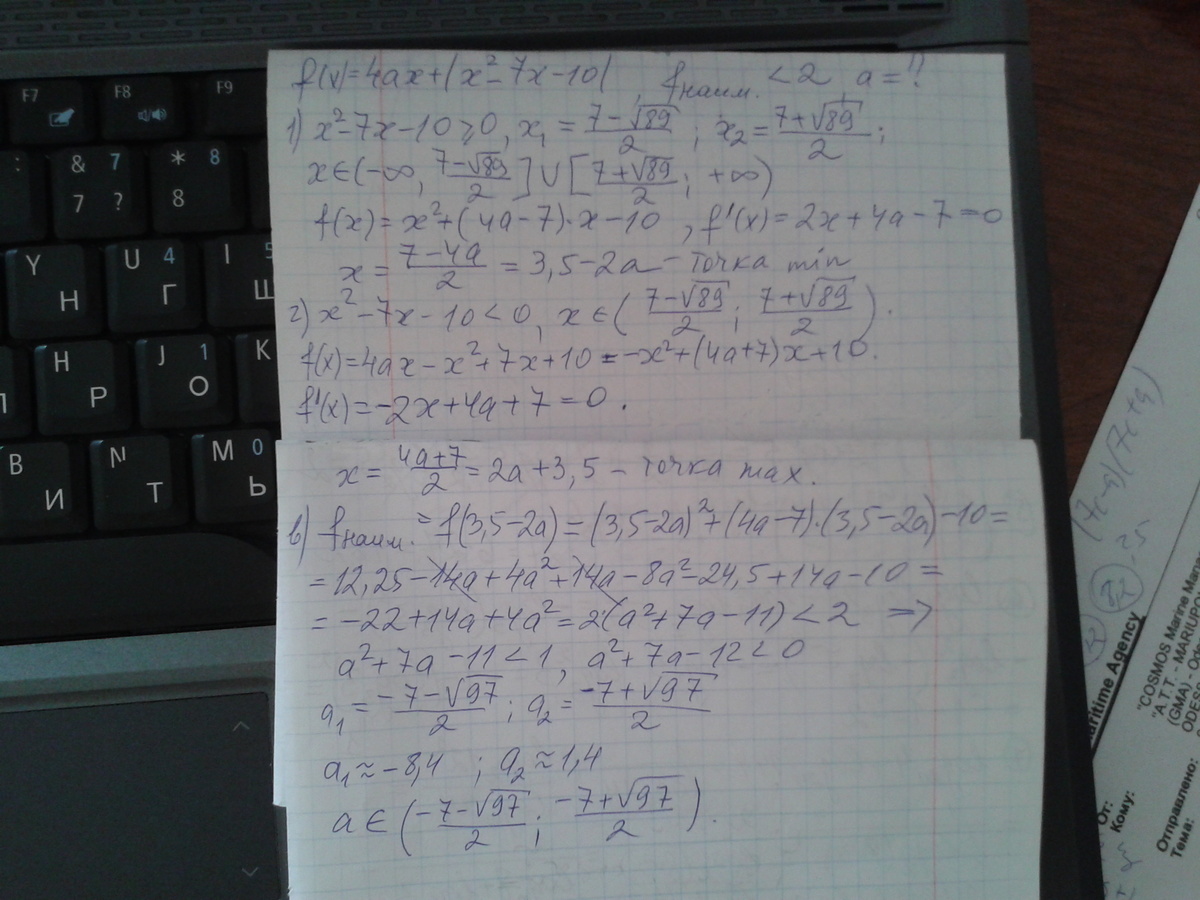 f(x)=4ax+|x²-7x-10|, fнаим. <2, a=?!
1) x²-7x-10≥0, x₁=(7-√89)/2; x₂=(7+√89)/2;
x∈(-∞, (7-√89)/2]∪[(7+√89)/2; +∞)
f(x)=x²+(4a-7)·x-10, f'(x)=2x+4a-7=0
x=(7-4a)/2=3,5-2a - точка min
2) x²-7x-10<0, x∈((7-√89)/2; (7+√89)/2).
f(x)=4ax-x²+7x+10=-x²+(4a+7)x+10.
f'(x)=-2x+4a+7=0.
x=(4a+7)/2=2a+3,5 - точка max.
в) fнаим.=f(3,5-2a)=(3,5-2a)²+(4a-7)·(3,5-2a)-10=
=12,25-14a+4a²+14a-8a²-24,5+14a-10=
=-22+14a+4a²=2(a²+7a-11)<2 =>
a²+7a-11<1, a²+7a-12<0
a₁=(-7-√97)/2; a₂=(-7+√97)/2
a₁≈-8,4; a₂≈1,4
a∈((-7-√97)/2; (-7+√97)/2).
F7
F8
F9
& 7
7 ?
* 8
8
Y
Н
U 4
Г
I 5
Ш
H
Р
J 1
О
K
В
И
N
Т
M 0
Ь
aritime Agency
"COSMOS Marine
"A.T.T. - MARIUS
(GMA) - Ode
ODES
От:
Кому:
Отправлено:
Тема: